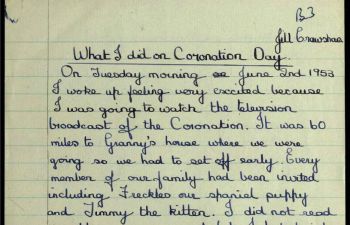 B3
Jill Crawshaw
What I did on Coronation Day.
On Tuesday morning June 2nd 1953
I woke up feeling very excited because
I was going to watch the television
broadcast of the Coronation. It was 60
miles to Granny's house where we were
going so we had to set off early. Every
member of our family had been invited
including Freckles our spaniel puppy
and Timmy the kitten. I did not read